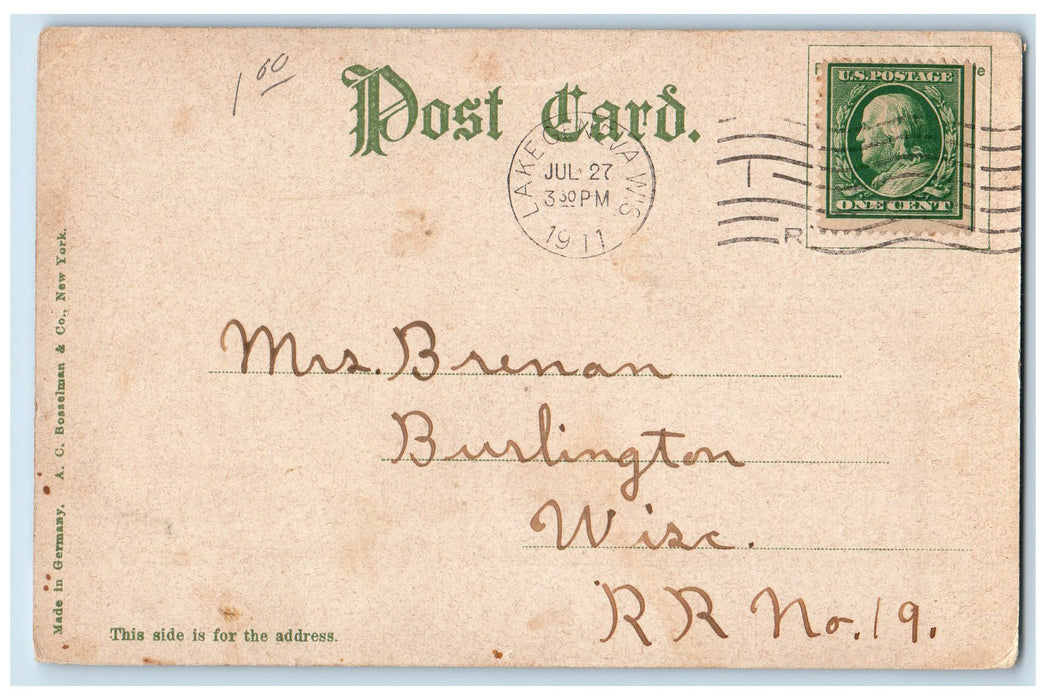 1 60
Post Card.
e
U.S. POSTAGE
ONE CENT
LAKE GENEVA WIS
JUL 27
3 30 PM
1911
R
Mrs. Brenan
Burlington
Wisc.
RR No. 19.
This side is for the address.
Made in Germany. A. C. Bosselman & Co., New York.